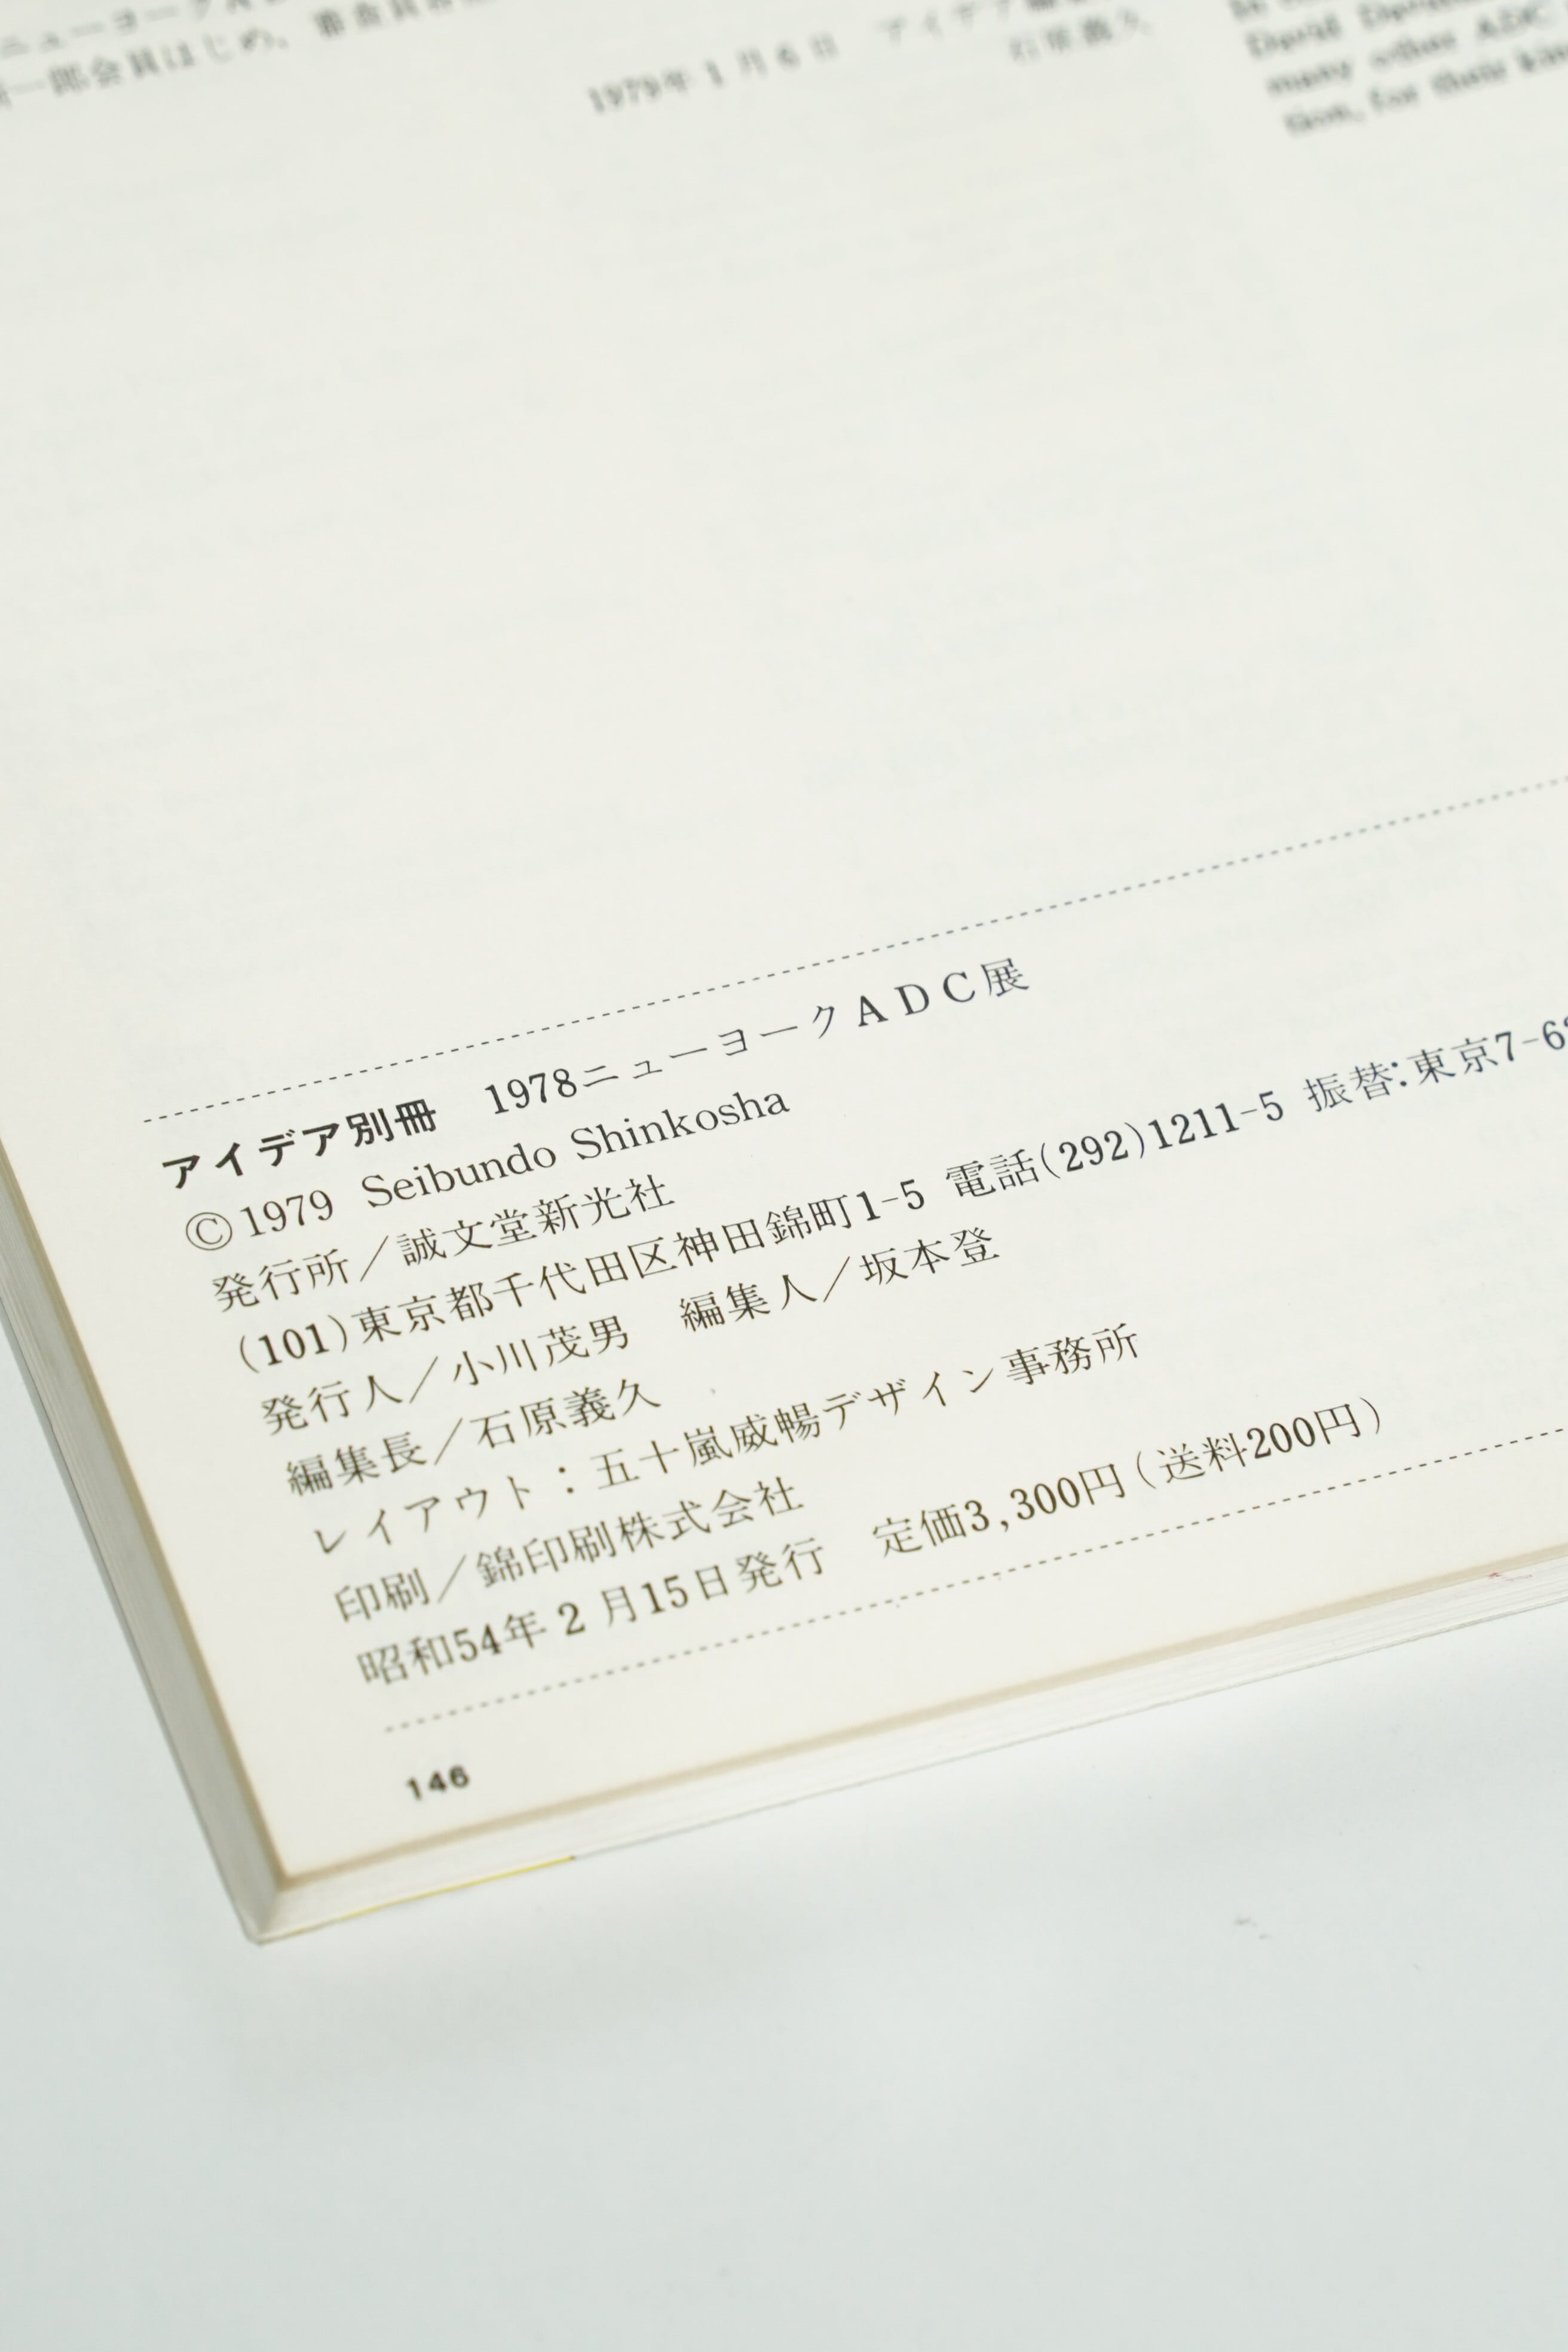 一郎会員はじめ、審査員
1979年1月6日　アイデア
石原義久
David
many other ADC
tion, for their kin
アイデア別冊　1978ニューヨークADC展
©1979 Seibundo Shinkosha
発行所／誠文堂新光社
(101)東京都千代田区神田錦町1-5 電話(292)1211-5 振替:東京7-6
発行人／小川茂男　編集人／坂本登
編集長／石原義久
レイアウト：五十嵐威暢デザイン事務所
印刷／錦印刷株式会社
昭和54年2月15日発行　定価3,300円(送料200円)
146